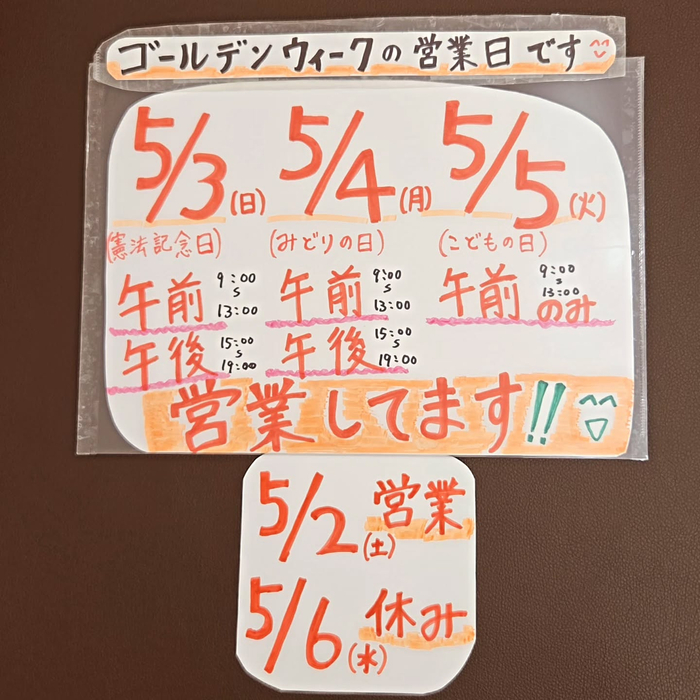 ゴールデンウィークの営業日です
5/3(日) 5/4(月) 5/5(火)
(憲法記念日) (みどりの日) (こどもの日)
午前 9:00 〜 13:00 午前 9:00 〜 13:00 午前 9:00 〜 13:00 のみ
午後 15:00 〜 19:00 午後 15:00 〜 19:00
営業してます!!
5/2(土) 営業
5/6(水) 休み